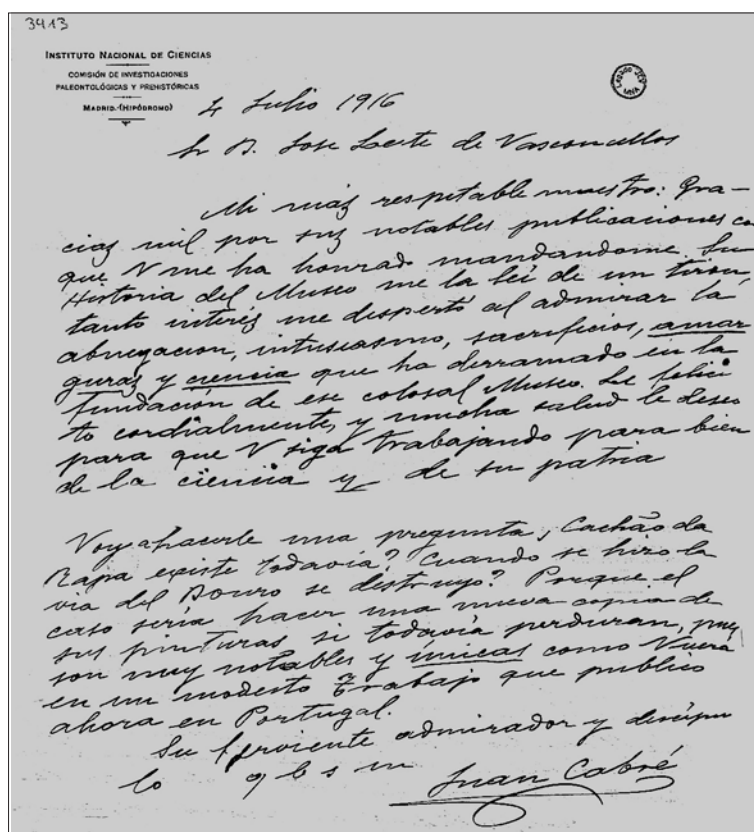 3413
INSTITUTO NACIONAL DE CIENCIAS
COMISIÓN DE INVESTIGACIONES
PALEONTOLÓGICAS Y PREHISTÓRICAS
MADRID.-(HIPÓDROMO)
Legado JLV
MNA
4 Julio 1916
Sr D. Jose Leite de Vasconcellos
Mi más respetable maestro: Gra-
cias mil por sus notables publicaciones co
que V me ha honrado mandandome. Su
Historia del Museo me la leí de un tiron,
tanto interés me despertó al admirar la
abnegacion, intusiasmo, sacrificios, amar
guras y ciencia que ha derramado en la
fundación de ese colosal Museo. Le felici
to cordialmente, y mucha salud le deseo
para que V siga trabajando para bien
de la ciencia y de su patria
Voy a hacerle una pregunta, Cachão da
Rapa existe todavía? Cuando se hizo la
via del Douro se destruyo? Porque el
caso sería hacer una nueva copia de
sus pinturas si todavía perduran, pues
son muy notables y únicas como V verá
en un modesto trabajo que publico
ahora en Portugal.
Su ferviente admirador y discipu
lo q b s m
Juan Cabré